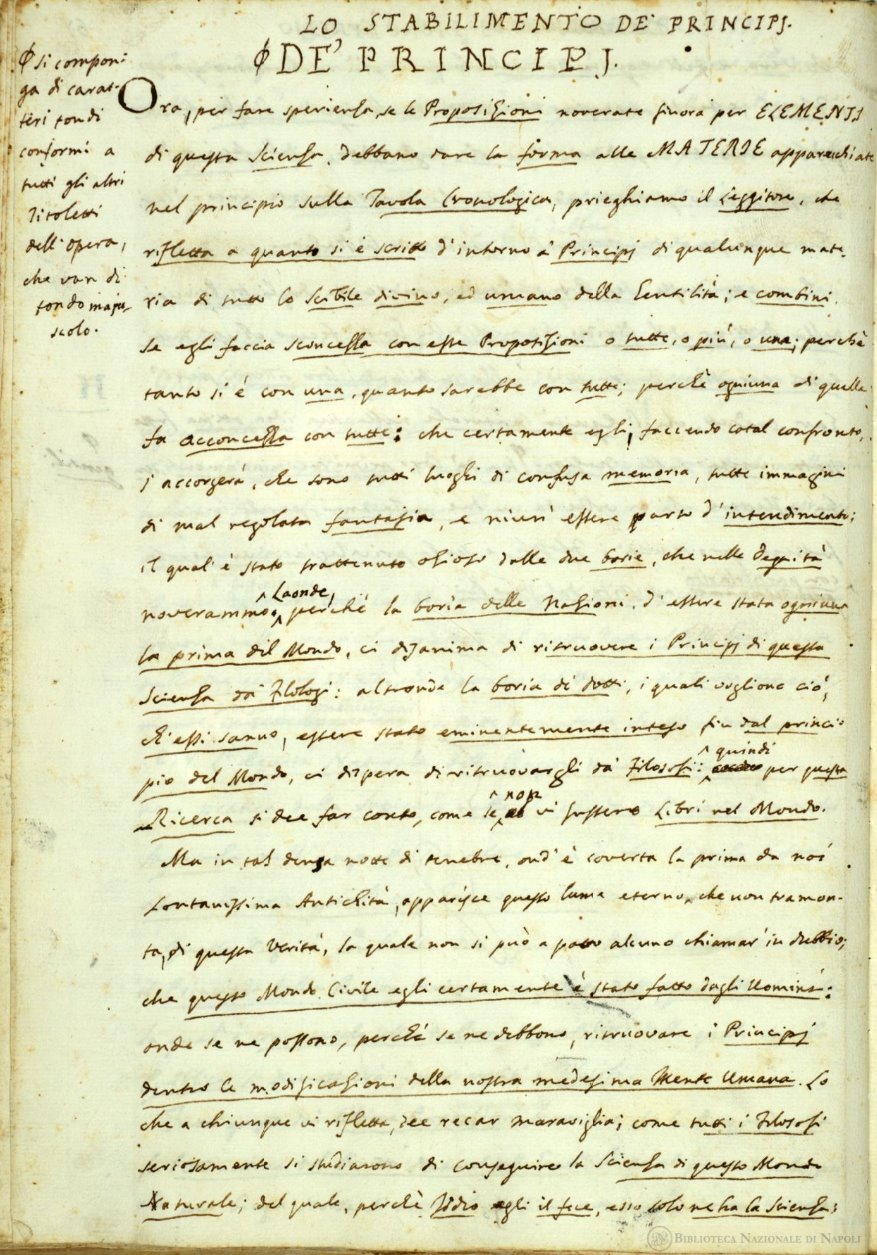 LO STABILIMENTO DE' PRINCIPJ.
φ DE' PRINCIPJ.
φ si componi
ga di carat-
teri tondi
conformi a
tutti gli altri
Titoletti
dell' opera,
che van di
tondo maju-
scolo.
Ora, per fare sperienza, se le Proposizioni noverate finora per ELEMENTI
di questa Scienza, debbano dare la forma alle MATERIE apparecchiate
nel principio sulla Tavola Cronologica, prieghiamo il Leggitore, che
rifletta a quanto si è scritto d'intorno a' Principj di qualunque mate-
ria di tutto lo Scibile divino, ed umano della Gentilità; e combini,
se egli faccia sconcezza con esse Proposizioni o tutte, o più, o una; perchè
tanto si è con una, quanto sarebbe con tutte; perchè ogniuna di quelle
fa acconcezza con tutte: che certamente egli, faccendo cotal confronto,
s' accorgerà, che sono tutti luoghi di confusa memoria, tutte immagini
di mal regolata fantasia, e niun' essere parto d' intendimento;
il qual' è stato trattenuto ozioso dalle due borie, che nelle Degnità
noverammo. Laonde, perchè la boria delle Nazioni, d' essere stata ogniuna
la prima del Mondo, ci disanima di ritruovere i Principj di questa
Scienza da' Filologi: altronde la boria de' dotti, i quali vogliono ciò,
ch' essi sanno, essere stato eminentemente inteso fin dal princi-
pio del Mondo, ci dispera di ritruovargli da' Filosofi: quindi per questa
Ricerca si dee far conto, come se non vi fussero Libri nel Mondo.
Ma in tal densa notte di tenebre, ond' è coverta la prima da noi
lontanissima Antichità, apparisce questo lume eterno, che non tramon-
ta, di questa Verità, la quale non si può a patto alcuno chiamar' in dubbio;
che questo Mondo Civile egli certamente è stato fatto dagli Uomini:
onde se ne possono, perchè se ne debbono, ritruovare i Principj
dentro le modificazioni della nostra medesima Mente Umana. Lo
che a chiunque vi rifletta, dee recar maraviglia; come tutti i Filosofi
seriosamente si studiarono di conseguire la Scienza di questo Mondo
Naturale; del quale, perchè Iddio egli il fece, esso solo ne ha la Scienza;
BIBLIOTECA NAZIONALE DI NAPOLI